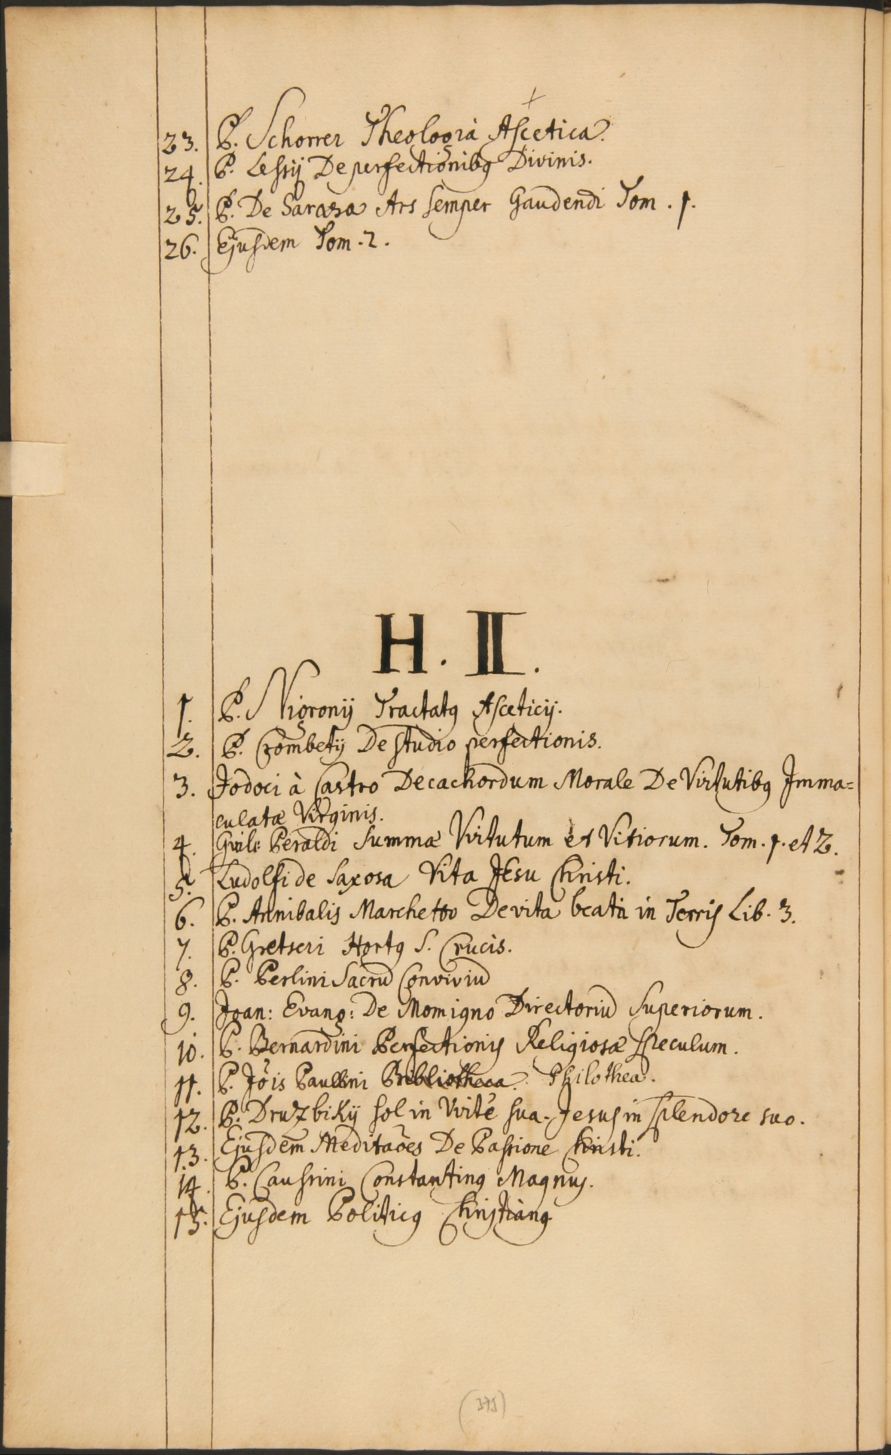 23. P. Schorrer Theologia Ascetica.
24. P. Lessij De perfectionibq Divinis.
25. P. De Saraza Ars semper Gaudendi Tom. 1.
26. Ejusdem Tom. 2.
H. II.
1. P. Nigronij Tractatq Asceticij.
2. P. Crombetij De studio perfectionis.
3. Jodoci à Castro Decachordum Morale De Virtutibq Imma=
culatæ Virginis.
4. Guil: Peraldi Summa Virtutum et Vitiorum. Tom. 1. et 2.
5. Ludolfi de Saxosa Vita JEsu Christi.
6. P. Annibalis Marchetto De vita beata in Terris Lib. 3.
7. P. Gretseri Hortq S. Crucis.
8. P. Perlini Sacrū Conviviū
9. Joan: Evang: De Momigno Directoriū Superiorum.
10. P. Bernardini Perfectionis Religiosæ Speculum.
11. P. Jōis Paullini Bibliotheca. Philothea.
12. P. Druzbikij sol in Virtē sua. Jesus in splendore suo.
13. Ejusdem Meditaōes De Passione Christi.
14. P. Caussini Constantinq Magnus.
15. Ejusdem Politicq Christianq
(375)